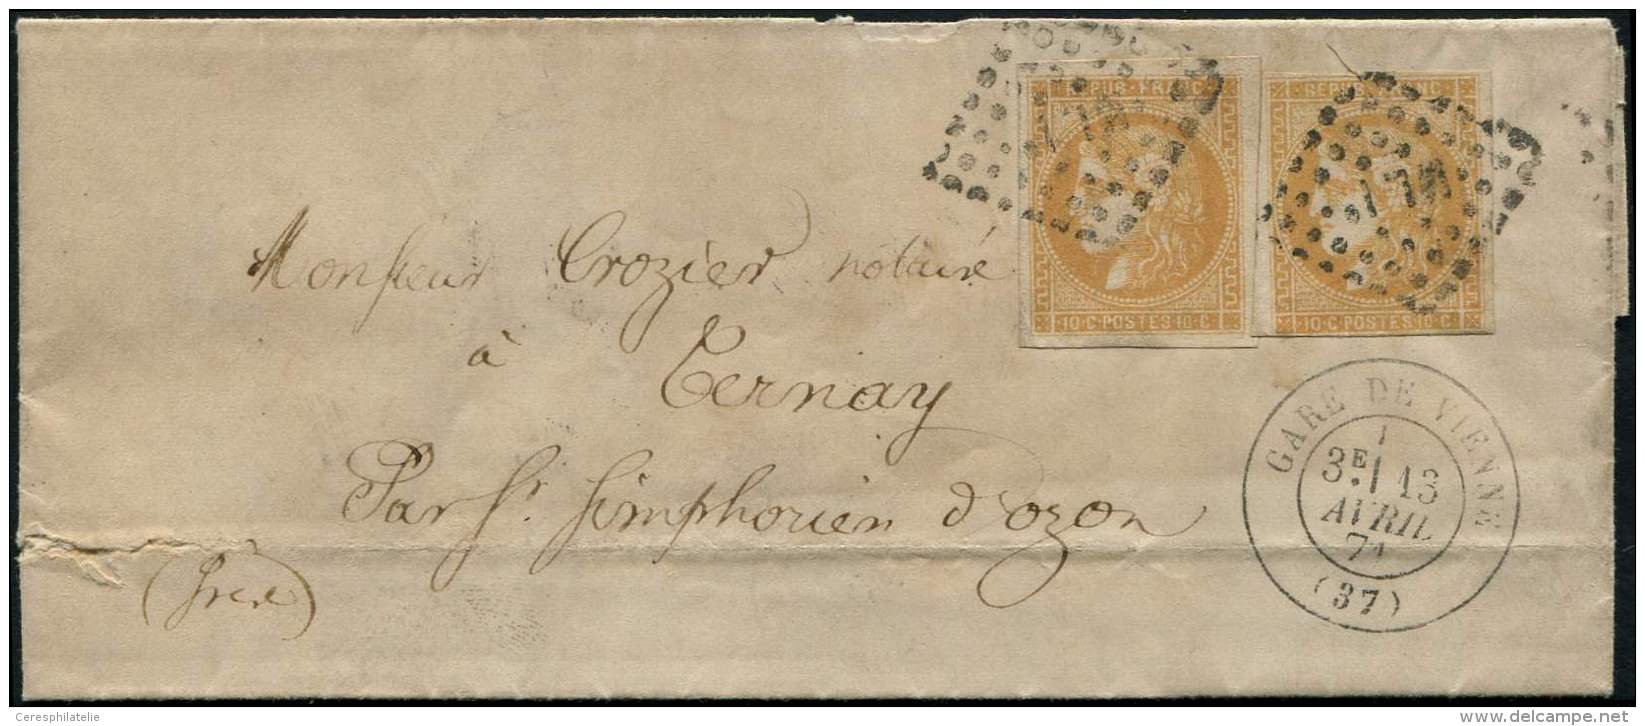 REPUB·FRANC·
10·C·POSTES·10·C·
REPUB·FRANC
10·C·POSTES·10·C·
Monsieur Crozier notaire
à
Ternay
Par St Simphorien d'Ozon
(Isère)
GARE DE VIENNE
3E 13
AVRIL
71
(37)
Ceresphilatelie
www.delcampe.net